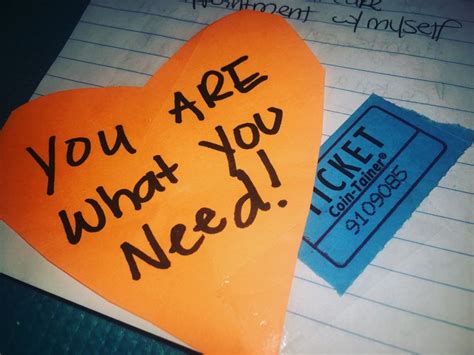 w/myself
YOU ARE
What You
Need!
TICKET
Coin-Tainer®
9109085